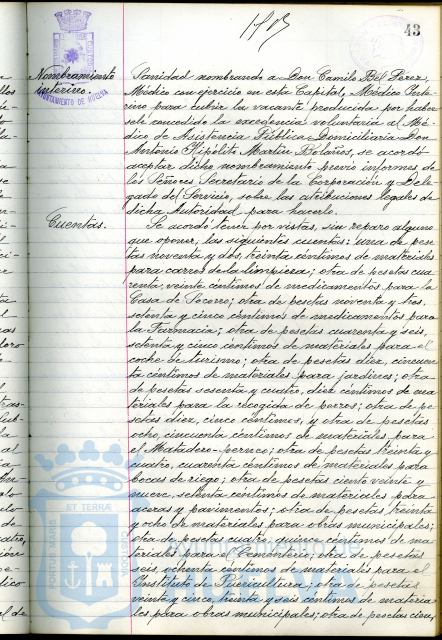 43
Nombramiento
interino.
AYUNTAMIENTO DE HUELVA
Sanidad nombrando a Don Camilo Bel Pérez,
Médico con ejercicio en esta Capital, Médico Inte-
rino para cubrir la vacante producida por haber-
sele concedido la excedencia voluntaria al Mé-
dico de Asistencia Pública Domiciliaria Don
Antonio Hipólito Martín Bolaños, se acordó
aceptar dicho nombramiento previo informes de
los Señores Secretario de la Corporación y Dele-
gado del Servicio, sobre las atribuciones legales de
dicha Autoridad para hacerlo.
Cuentas.
Se acordó tener por vistas, sin reparo alguno
que oponer, las siguientes cuentas: una de pese-
tas noventa y dos, treinta céntimos de materiales
para carros de la limpieza; otra de pesetas cua-
renta, veinte céntimos de medicamentos para la
Casa de Socorro; otra de pesetas noventa y tres,
setenta y cinco céntimos de medicamentos para
la Farmacia; otra de pesetas cuarenta y seis,
setenta y cinco céntimos de materiales para el
coche de turismo; otra de pesetas diez, cincuen
ta céntimos de materiales para jardines; otra
de pesetas sesenta y cuatro, diez céntimos de ma
teriales para la recogida de perros; otra de pe-
setas diez, cinco céntimos, y otra de pesetas
ocho, cincuenta céntimos de materiales para
el Matadero; otra de pesetas treinta y
cuatro, cuarenta céntimos de materiales para
bocas de riego; otra de pesetas ciento veinte y
nueve, setenta céntimos de materiales para
aceras y pavimentos; otra de pesetas treinta
y ocho de materiales para obras municipales;
otra de pesetas cuatro, quince céntimos de ma
teriales para el Cementerio; otra de pesetas
seis, ochenta céntimos de materiales para el
Instituto de Puericultura; otra de pesetas
veinte y cinco, treinta y seis céntimos de materia
les para obras municipales; otra de pesetas cien,
PORTUS MARIS ET TERRAE CUSTODIA